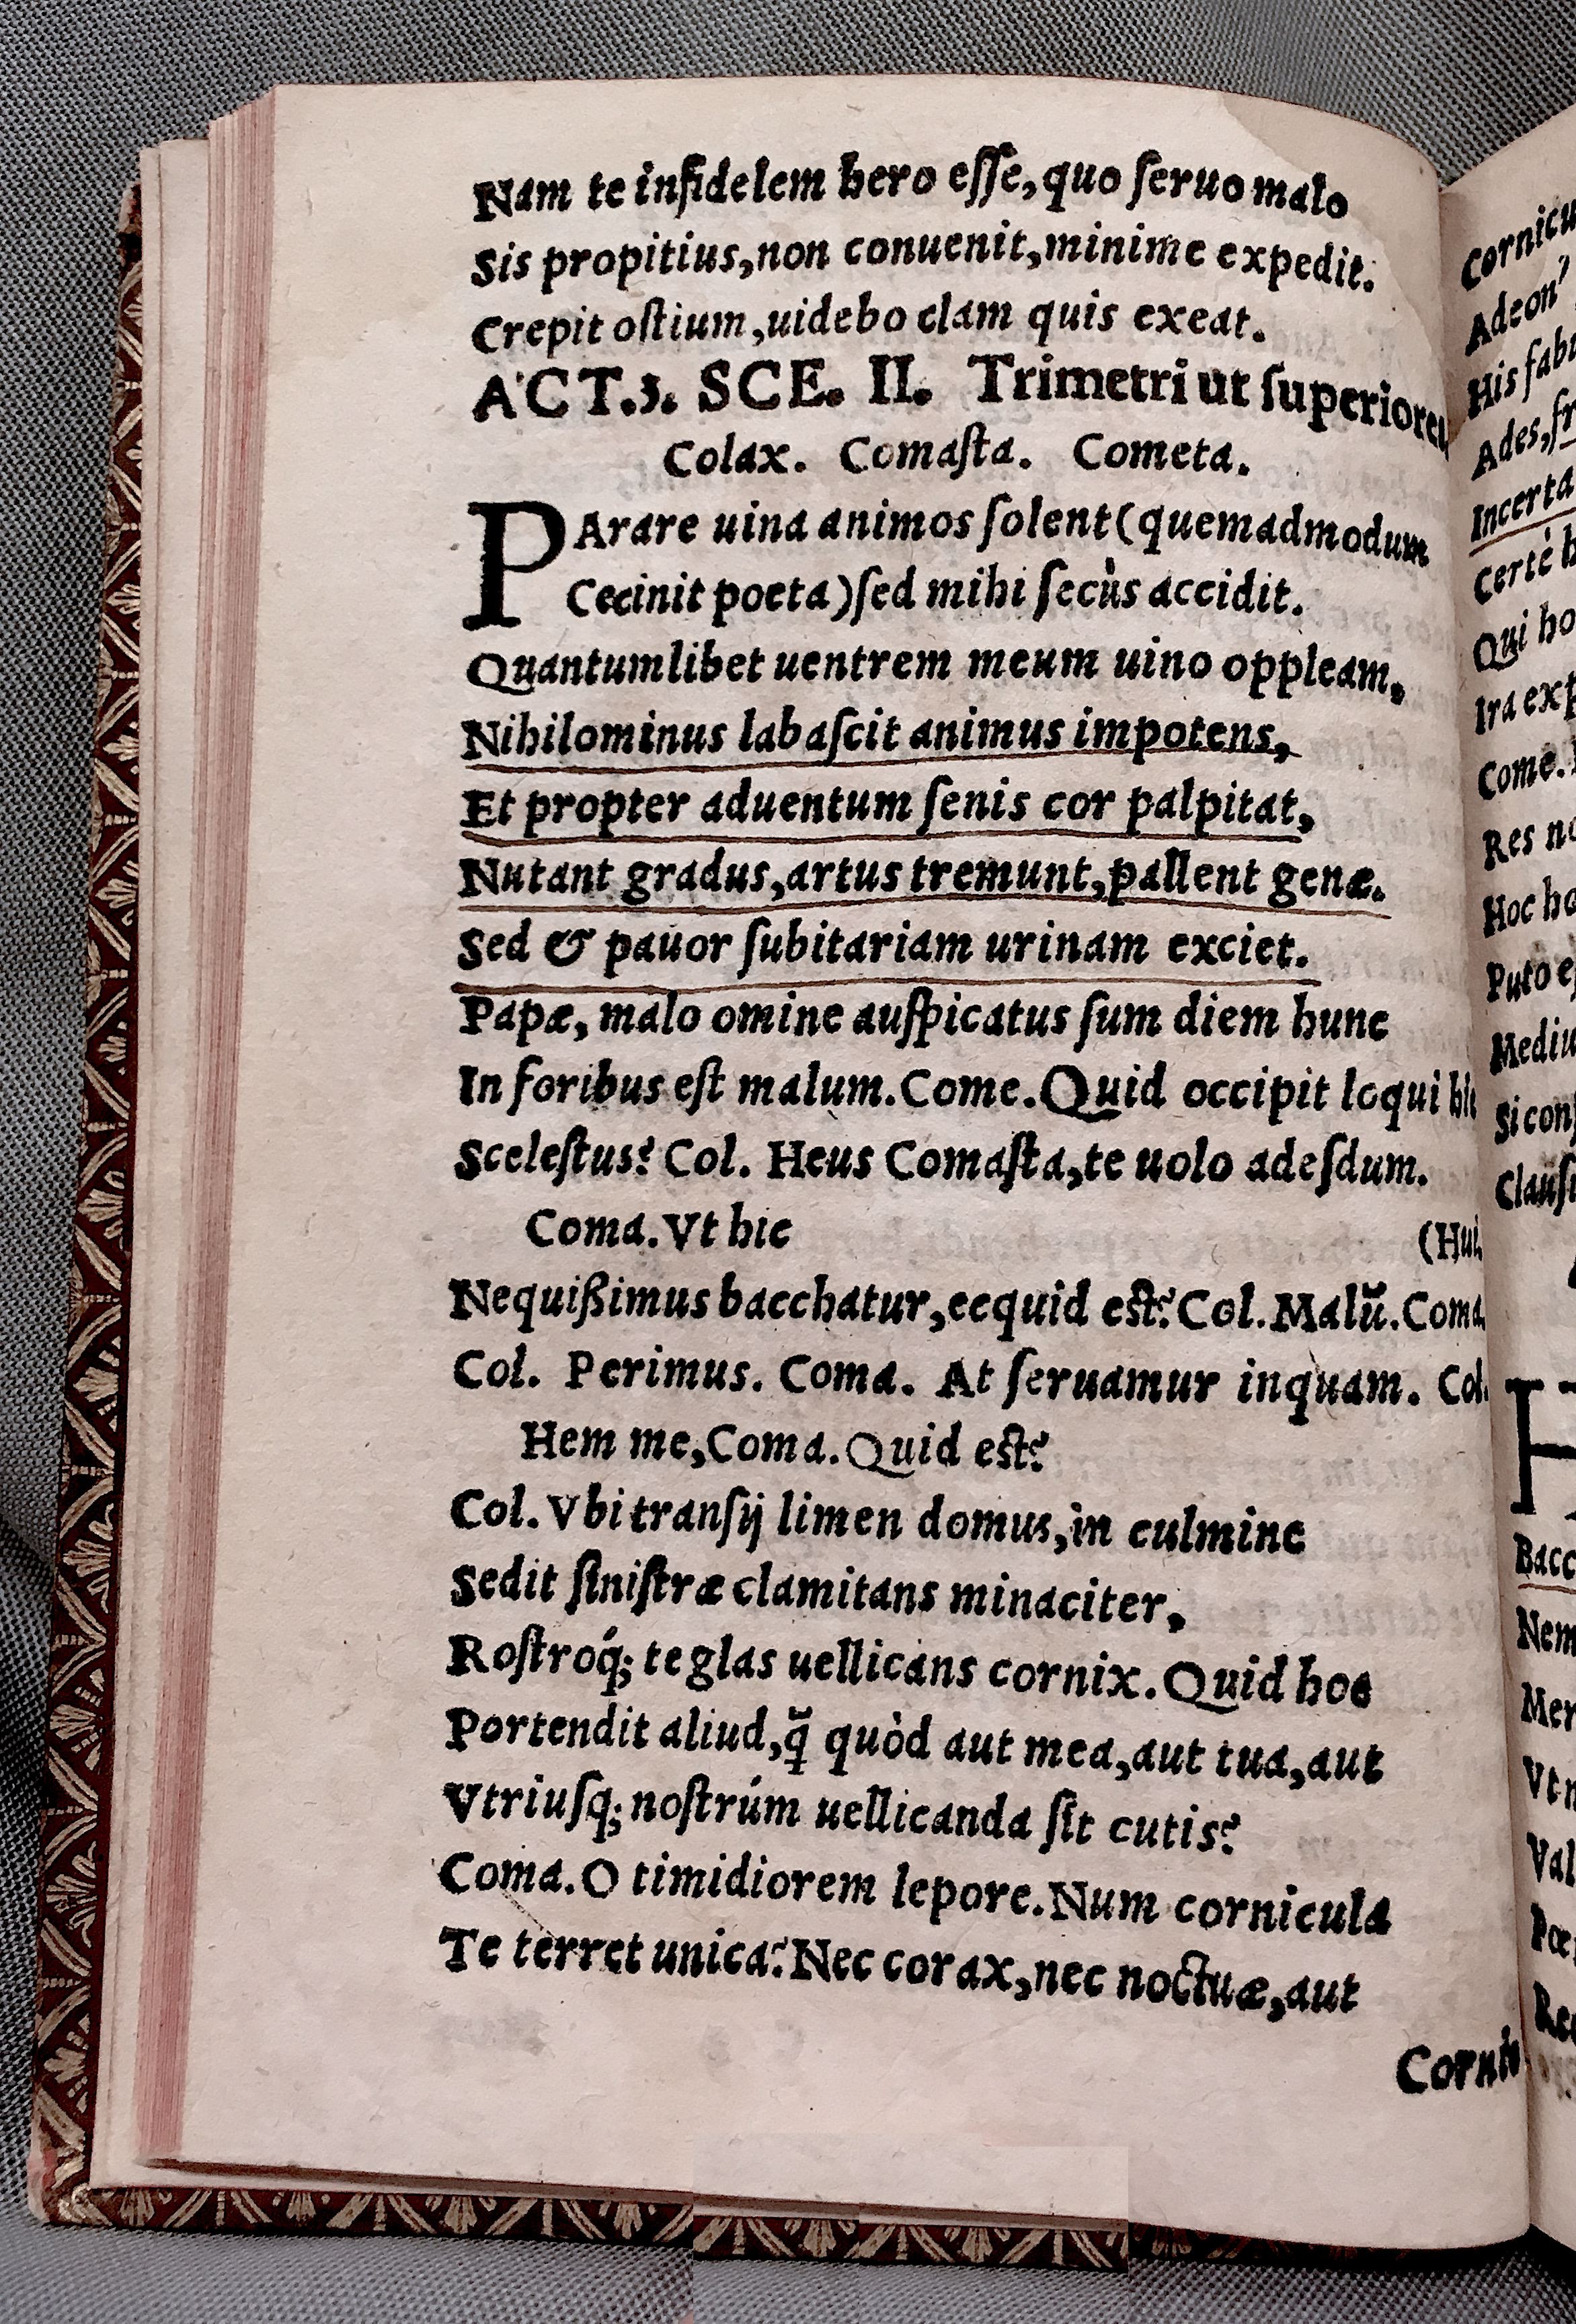 Nam te infidelem hero eſſe, quo ſeruo malo
Sis propitius, non conuenit, minime expedit.
Crepit oſtium, uidebo clam quis exeat.
ACT. 3. SCE. II. Trimetri ut ſuperiores
Colax. Comaſta. Cometa.
PArare uina animos ſolent (quemadmodum
Cecinit poeta) ſed mihi ſecùs accidit.
Quantumlibet uentrem meum uino oppleam,
Nihilominus labaſcit animus impotens,
Et propter aduentum ſenis cor palpitat,
Nutant gradus, artus tremunt, pallent genæ.
Sed & pauor ſubitariam urinam exciet.
Papæ, malo omine auſpicatus ſum diem hunc
In foribus eſt malum. Come. Quid occipit loqui hic
Sceleſtus? Col. Heus Comaſta, te uolo adeſdum.
Coma. Vt hic (Hui.
Nequißimus bacchatur, ecquid eſt? Col. Malũ. Coma.
Col. Perimus. Coma. At ſeruamur inquam. Col.
Hem me, Coma. Quid eſt?
Col. Vbi tranſij limen domus, in culmine
Sedit ſiniſtræ clamitans minaciter,
Roſtroq́; teglas uellicans cornix. Quid hoc
Portendit aliud, q̃ quòd aut mea, aut tua, aut
Vtriuſq; noſtrúm uellicanda ſit cutis?
Coma. O timidiorem lepore. Num cornicula
Te terret unica? Nec corax, nec noctuæ, aut
Cornicu
Adeon'
His fabu
Ades, fr
Incerta
Certè h
Qui ho
Ira exp
Come.
Res no
Hoc ho
Puto eſ
Mediu
Si conſ
Clauſi
Bacc
Nem
Mer
Vt n
Val